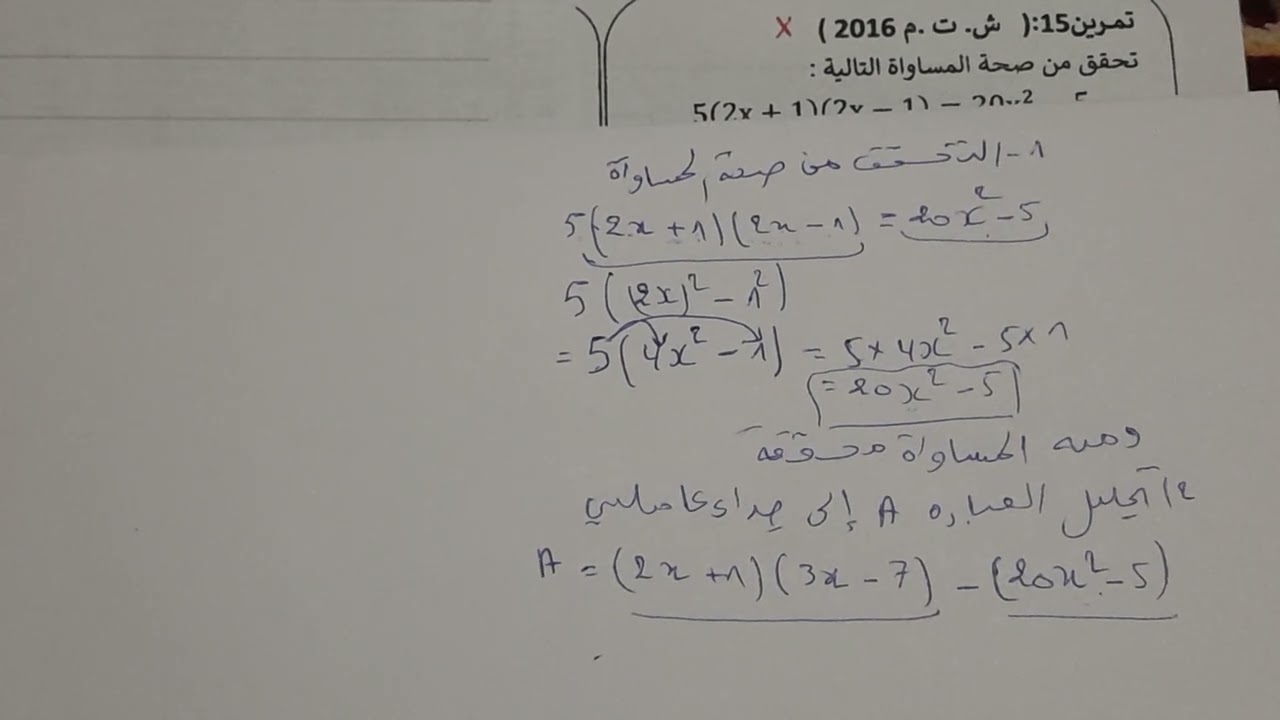 تمرين15:( ش. ت .م 2016 ) X
تحقق من صحة المساواة التالية :
5(2x + 1)(2x − 1) = 20x² − 5
1- التحقق من صحة المساواة
5(2x+1)(2x-1) = 20x² - 5
5((2x)² - 1²)
= 5(4x² - 1) = 5×4x² - 5×1
= 20x² - 5
ومنه المساواة محققة
2) تحليل العبارة A إلى جداء عاملين
A = (2x+1)(3x-7) - (20x²-5)